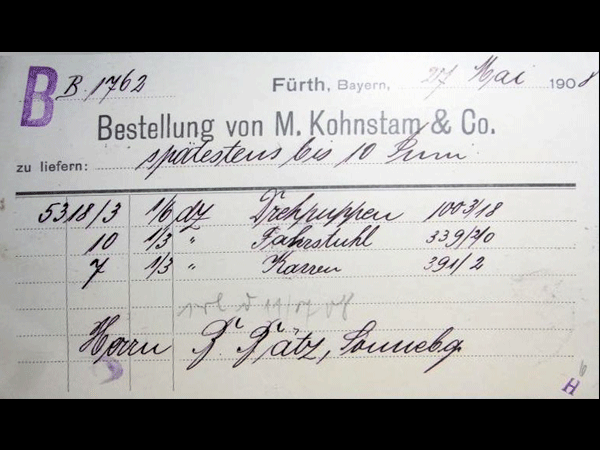 B B. 1762 Fürth, Bayern, 27 Mai 1908
Bestellung von M. Kohnstam & Co.
zu liefern: spätestens bis 10 Juni
5318/3 1/6 dz Drehpuppen 1003/18
10 1/3 " Fahrstuhl 339/70
7 1/3 " Karren 391/2
Herrn F. Tätz, Sonnebg.
H